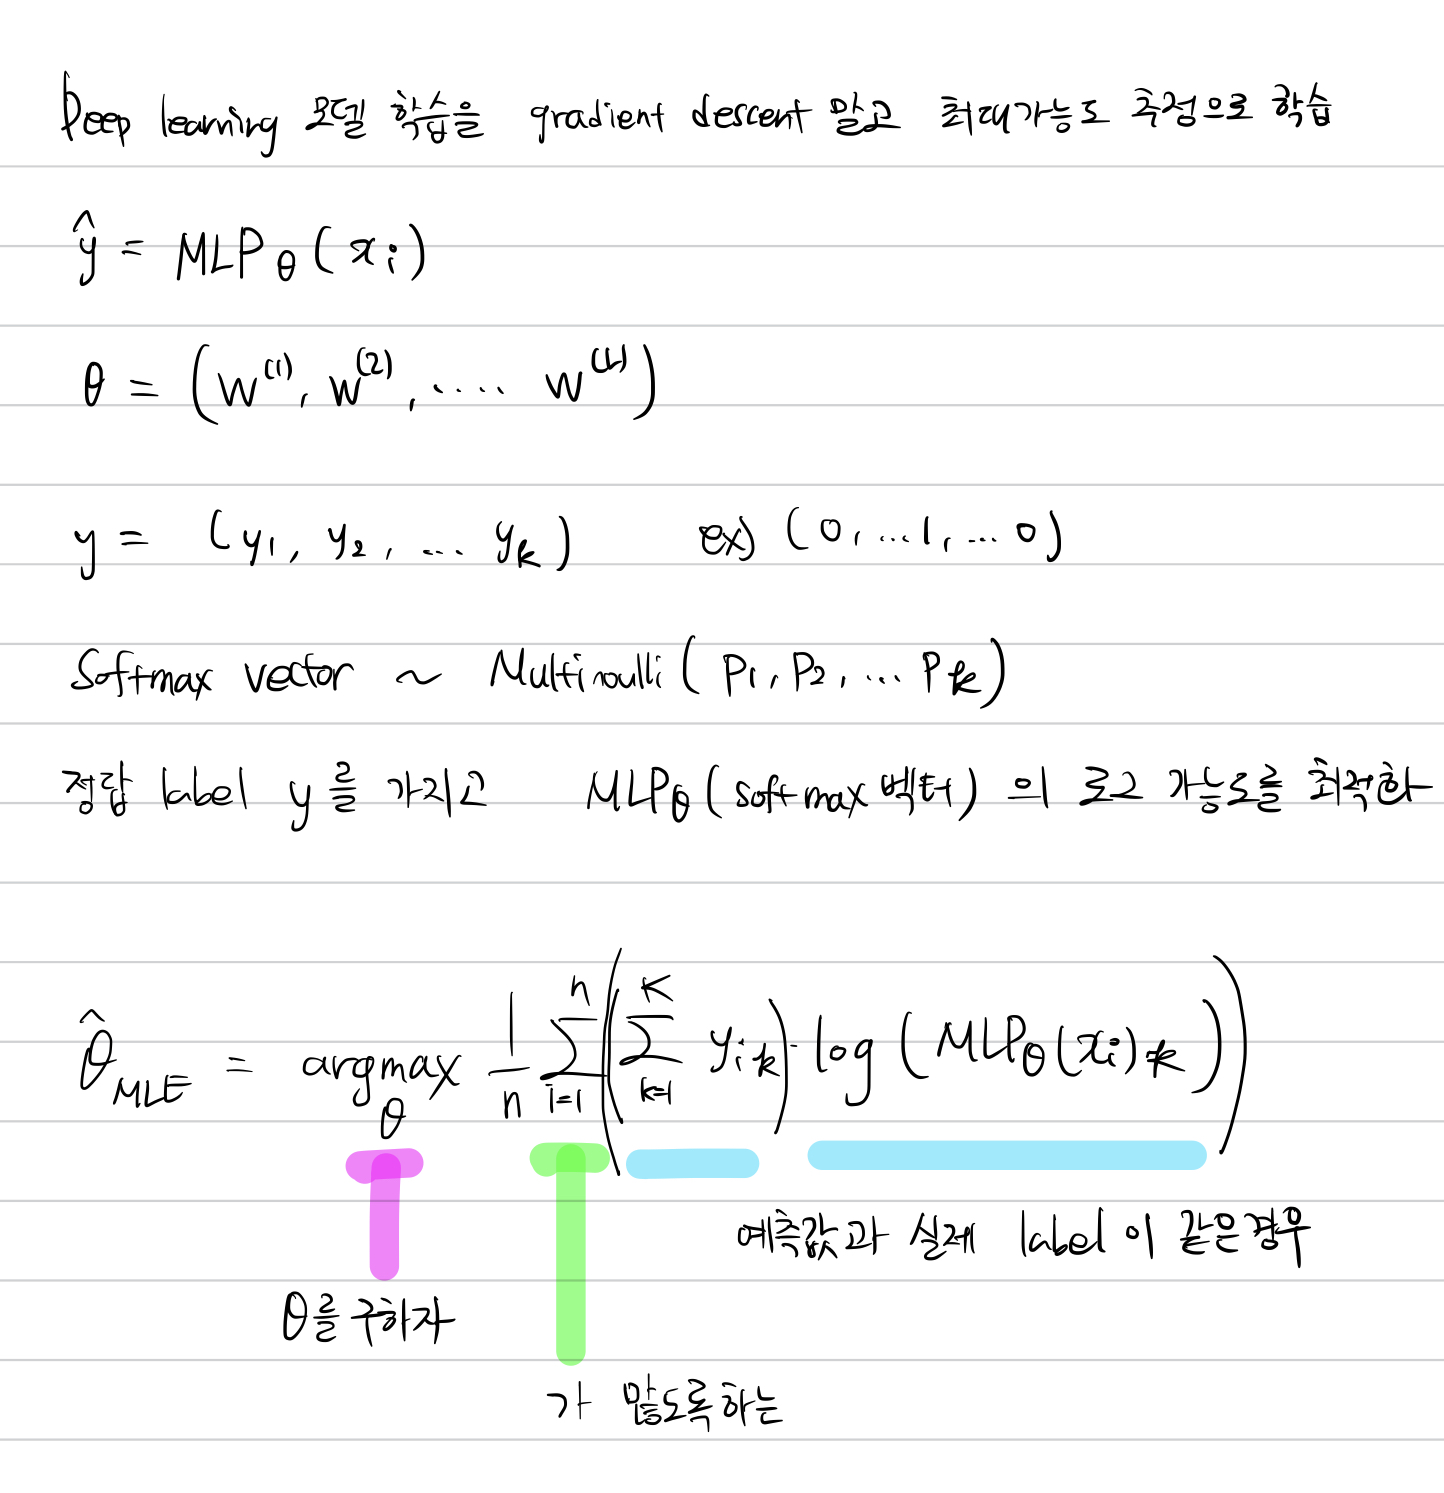 Deep learning 모델 학습을 gradient descent 말고 최대가능도 추정으로 학습
ŷ = MLP_θ(x_i)
θ = (W^(1), W^(2), .... W^(L))
y = (y_1, y_2, ... y_k) ex) (0, ...1, ... 0)
Softmax vector ~ Multinoulli(P_1, P_2, ... P_k)
정답 label y를 가지고 MLP_θ(softmax 벡터)의 로그 가능도를 최적화
θ̂_MLE = argmax_θ 1/n Σ_{i=1}^{n} ((Σ_{k=1}^{K} y_{ik})·log(MLP_θ(x_i)_k))
예측값과 실제 label이 같은경우
θ를 구하자
가 많도록하는